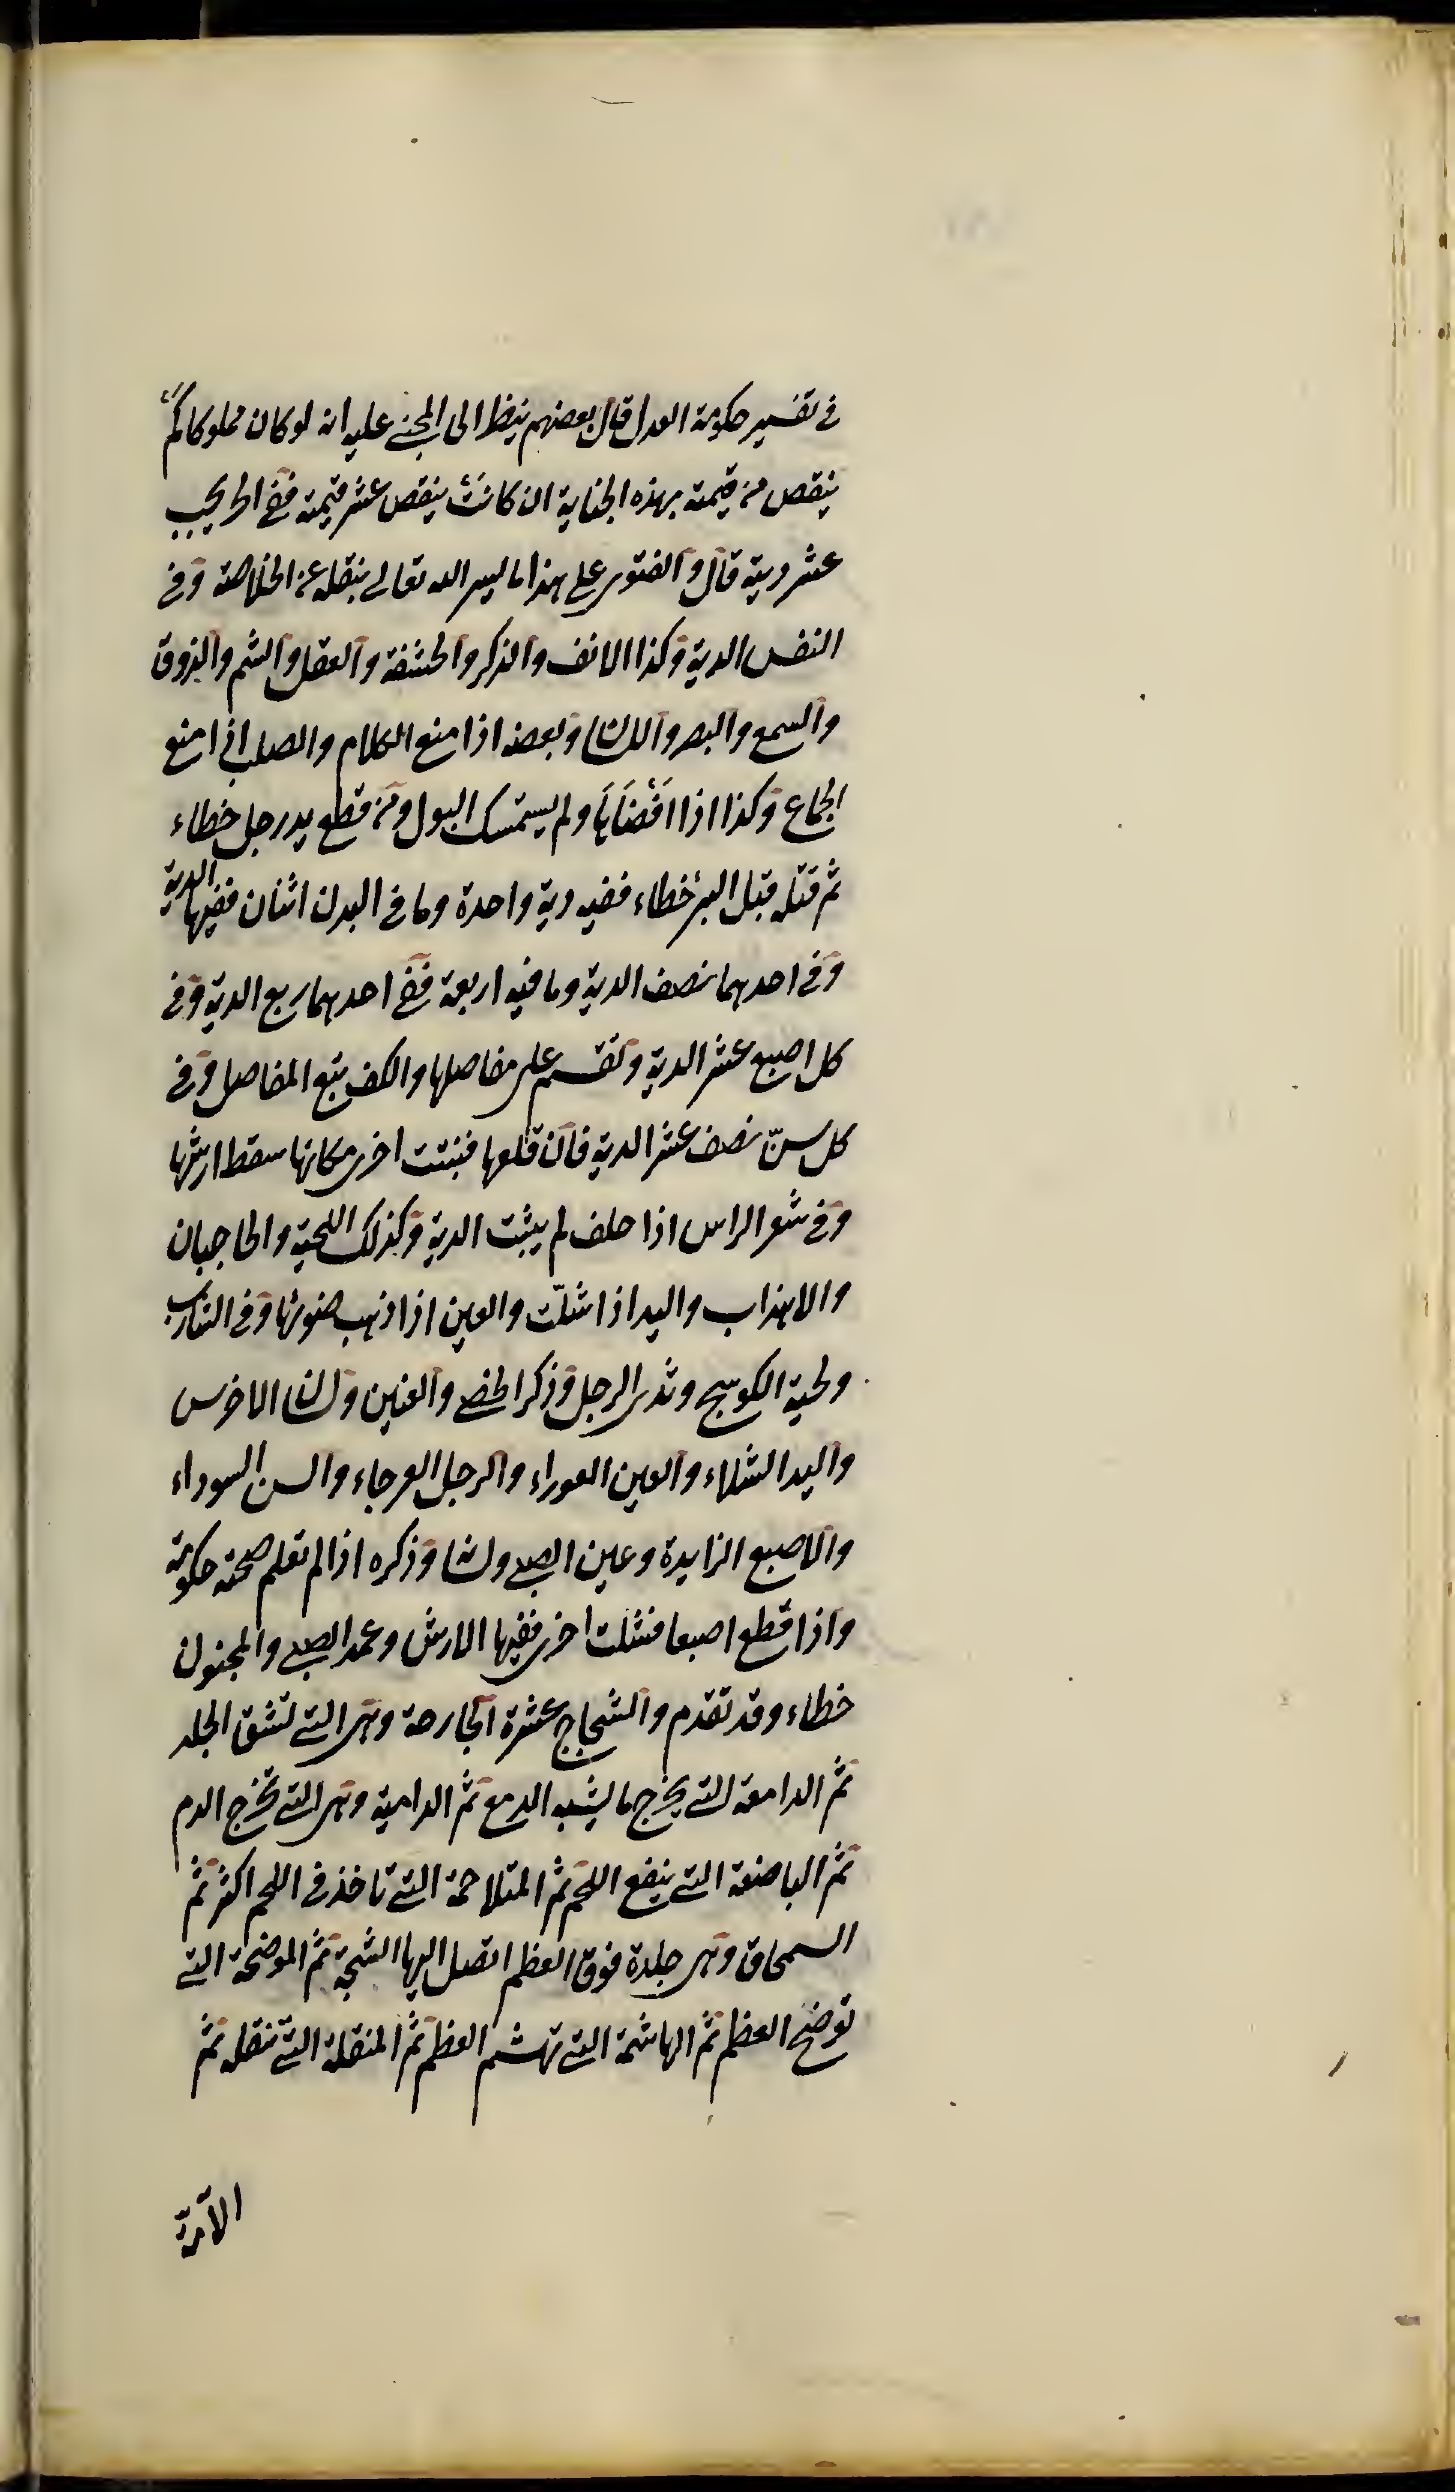 في تفسير حكومة العدل قال بعضهم ينظر الى المجني عليه انه لو كان مملوكا كم
ينقص من قيمته بهذه الجناية ان كانت ينقص عشر قيمته ففي الحر يجب
عشر دية قال والفتوى على هذا ما يسر الله تعالى بنقله عن الخلاصة وفي
النفس الدية وكذا الانف والذكر والحشفة والعقل والشم والذوق
والسمع والبصر واللسان وبعضه اذا منع الكلام والصلب اذا منع
الجماع وكذا اذا افضاها ولم يستمسك البول ومن قطع يد رجل خطاء
ثم قتله قبل البرء خطاء ففيه دية واحدة وما في البدن اثنان ففيها الدية
وفي احدهما نصف الدية وما فيه اربعة ففي احدهما ربع الدية وفي
كل اصبع عشر الدية وتقسم على مفاصلها والكف يتبع المفاصل وفي
كل سنّ نصف عشر الدية فان قلعها فنبتت اخرى مكانها سقط ارشها
وفي شعر الراس اذا حلف لم يثبت الدية وكذلك اللحية والحاجبان
والاهداب واليد اذا شلّت والعين اذا ذهب ضوئها وفي الشارب
ولحية الكوسج وثدى الرجل وذكر الخصي والعنين ولسان الاخرس
واليد الشلاء والعين العوراء والرجل العرجاء والسن السوداء
والاصبع الزايدة وعين الصبي ولسانه وذكره اذا لم تعلم صحته حكومة
واذا قطع اصبعا فشلت اخرى ففيها الارش وعمد الصبي والمجنون
خطاء وقد تقدم والشجاج عشرة الحارصة وهى التي تشق الجلد
ثم الدامعة التي يخرج ما يشبه الدمع ثم الدامية وهى التي تخرج الدم
ثم الباضعة التي يبضع اللحم ثم المتلاحمة التي تاخذ في اللحم اكثر ثم
السمحاق وهى جلدة فوق العظم اتصل اليها الشجة ثم الموضحة التي
توضح العظم ثم الهاشمة التي تهشم العظم ثم المنقلة التي تنقله ثم
الآمّة